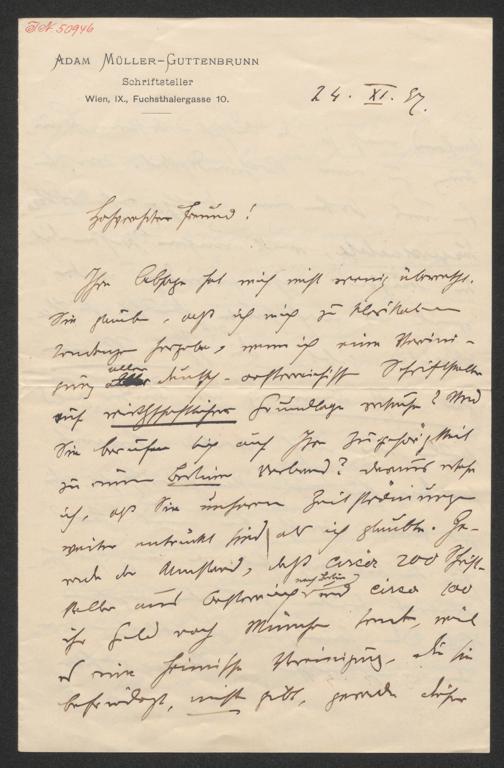 I.N. 50946
ADAM MÜLLER-GUTTENBRUNN
Schriftsteller
Wien, IX., Fuchsthalergasse 10.
24. XI. 97.
Hochverehrter Freund!
Ihre Absage hat mich nicht wenig überrascht.
Sie glauben, daß ich mich zu klerikalen
Tendenzen hergebe, wenn ich eine Vereini-
gung aller deutsch-oesterreichischer Schriftsteller
auf wirthschaftlicher Grundlage versuche? Und
Sie berufen sich auf Ihre Zugehörigkeit
zu einem Berliner Verband? Daraus sehe
ich, daß Sie unseren Zeitströmungen
weiter entrückt sind, als ich glaubte. Ge-
rade der Umstand, daß circa 200 Schrift-
steller aus Oesterreich nach Berlin und circa 100
ihr Geld nach München senden, weil
es eine heimische Vereinigung, die sie
befriedigt, nicht gibt, gerade dieser